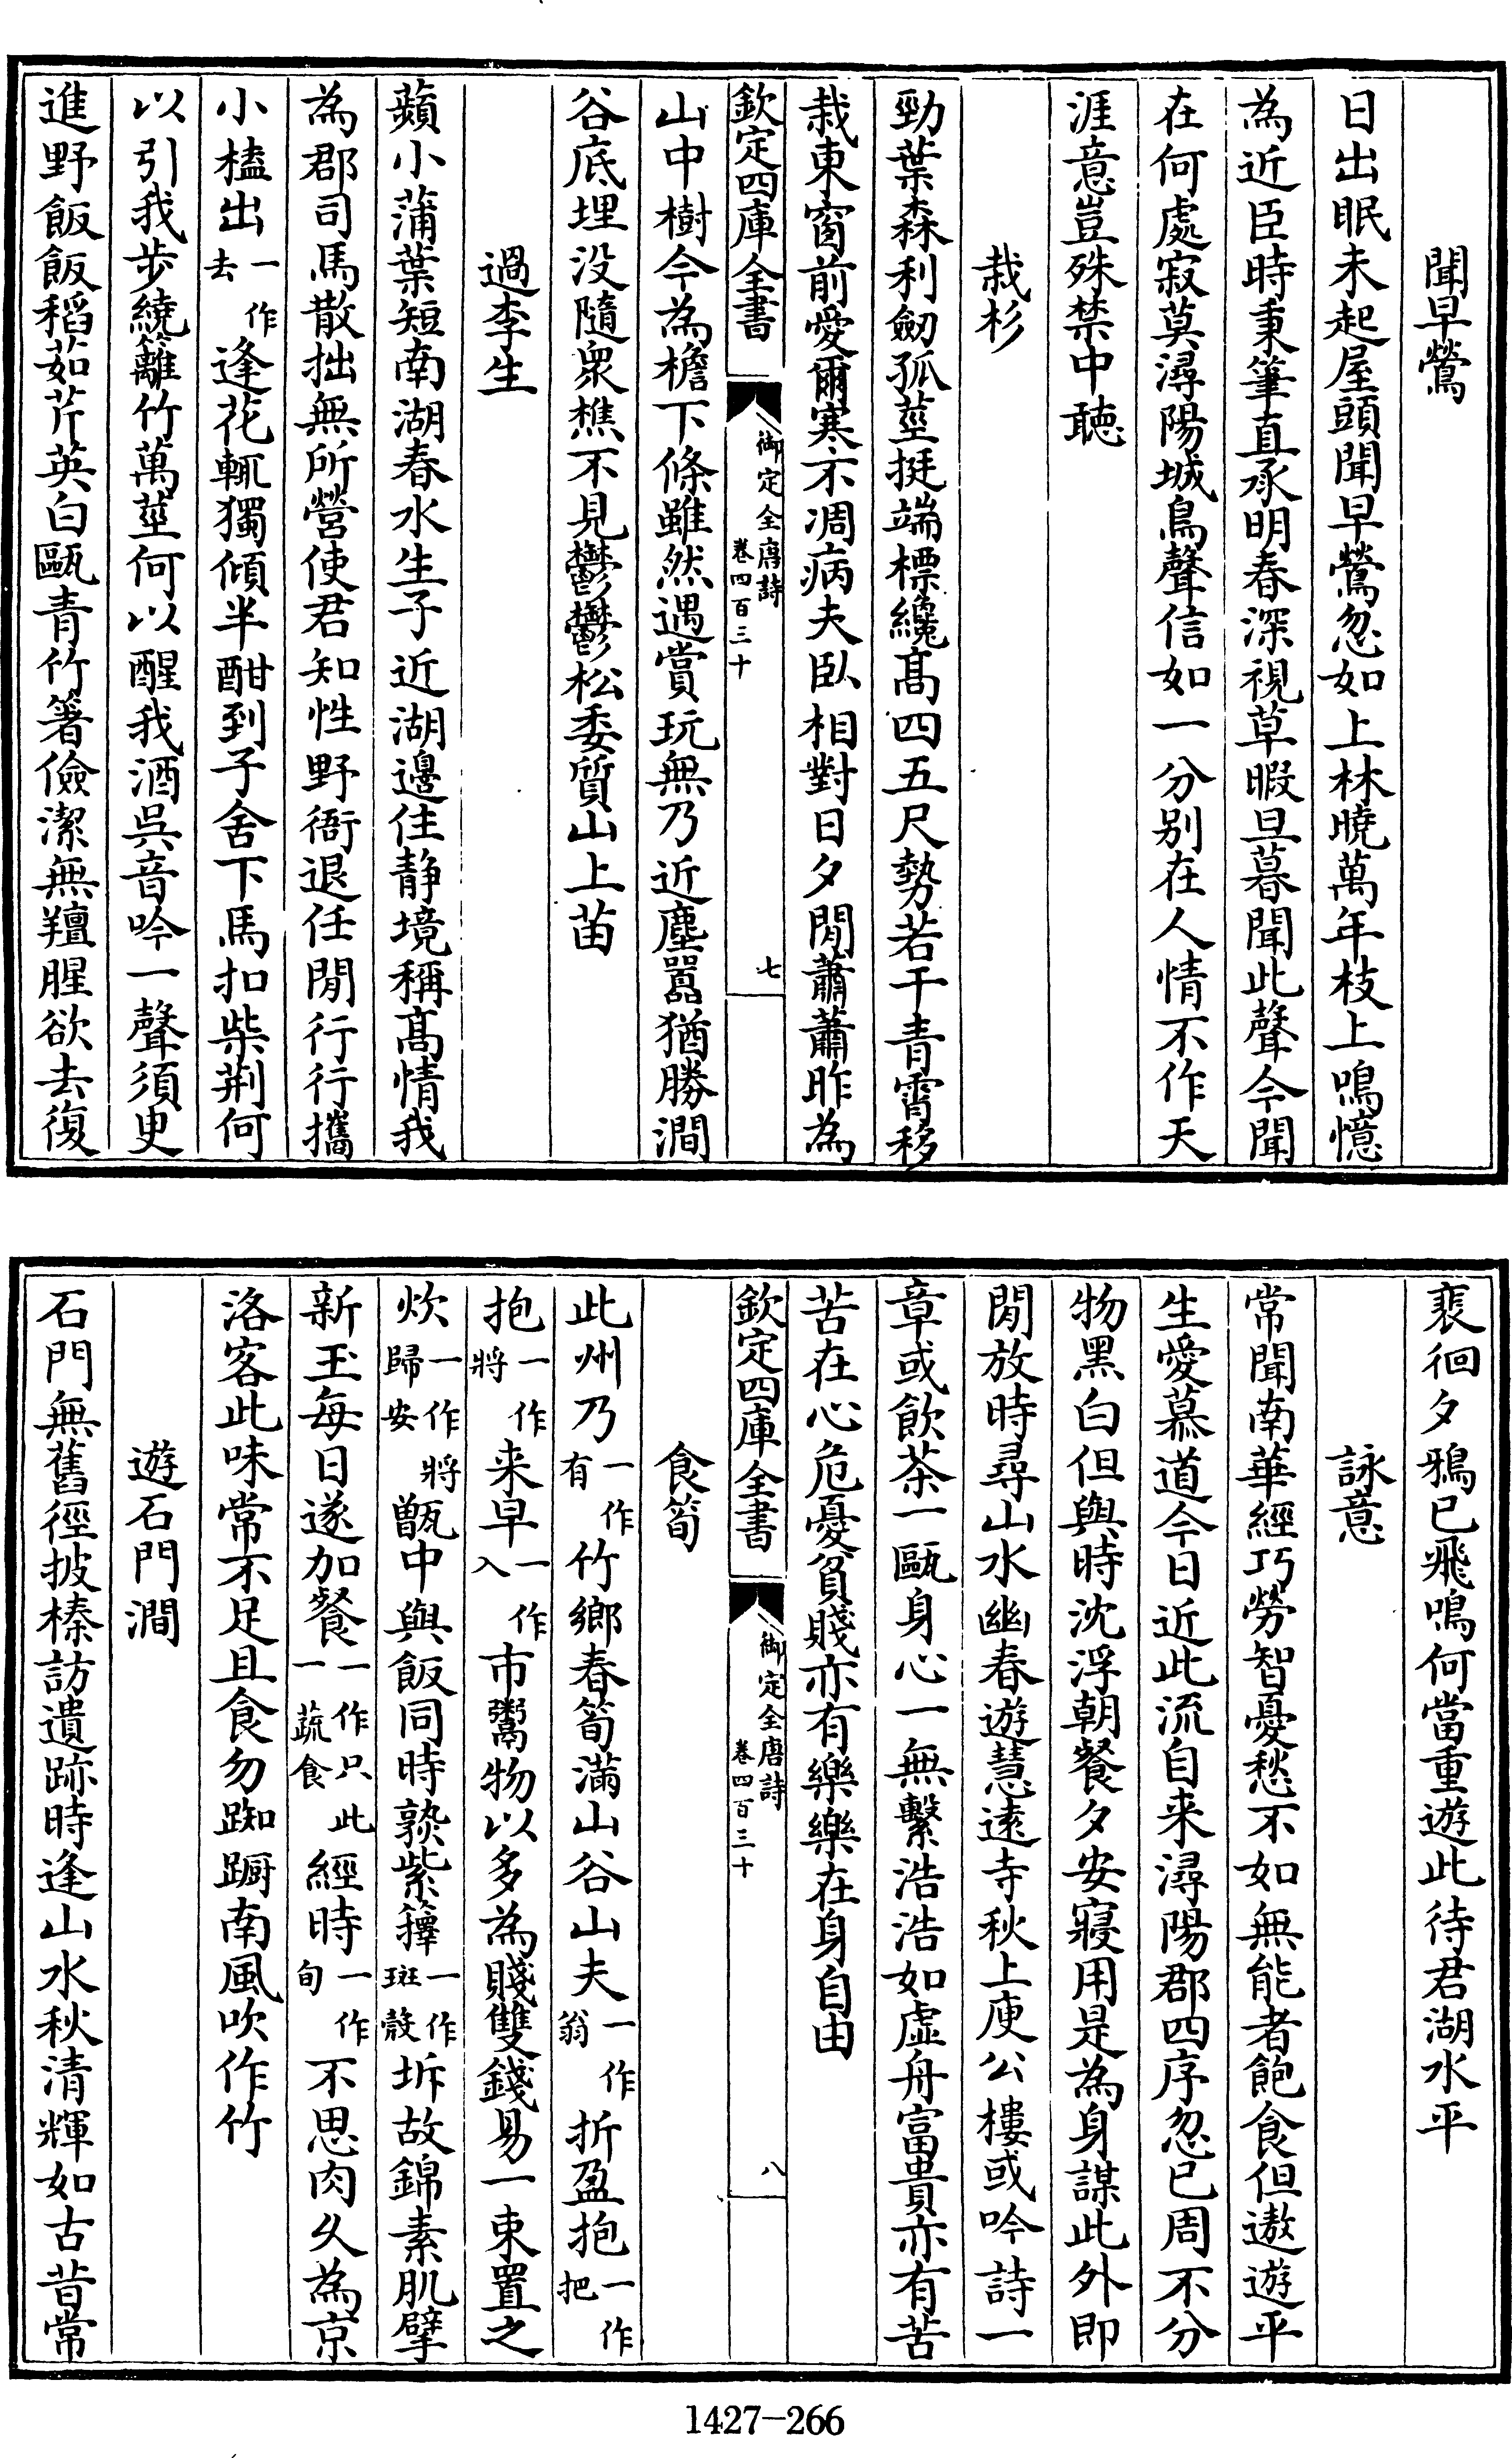 聞早鶯
日出眠未起屋頭聞早鶯忽如上林曉萬年枝上鳴憶
為近臣時秉筆直承明春深視草暇旦暮聞此聲今聞
在何處寂莫潯陽城鳥聲信如一分别在人情不作天
涯意豈殊禁中聽
栽杉
勁葉森利劒孤莖挺端標纔髙四五尺勢若干青霄移
栽東窗前愛爾寒不凋病夫臥相對日夕閒蕭蕭昨為
欽定四庫全書 御定全唐詩 卷四百三十 七
山中樹今為檐下條雖然遇賞玩無乃近塵囂猶勝澗
谷底埋没隨衆樵不見鬱鬱松委質山上苗
過李生
蘋小蒲葉短南湖春水生子近湖邊住静境稱髙情我
為郡司馬散拙無所營使君知性野衙退任閒行行攜
小榼出一作去逢花輒獨傾半酣到子舍下馬扣柴荆何
以引我步繞籬竹萬莖何以醒我酒吳音吟一聲須臾
進野飯飯稻茹芹英白甌青竹箸儉潔無羶腥欲去復
裴徊夕鴉已飛鳴何當重遊此待君湖水平
詠意
常聞南華經巧勞智憂愁不如無能者飽食但遨遊平
生愛慕道今日近此流自来潯陽郡四序忽已周不分
物黑白但與時沈浮朝餐夕安寢用是為身謀此外即
閒放時尋山水幽春遊慧遠寺秋上庾公樓或吟詩一
章或飲茶一甌身心一無繫浩浩如虛舟富貴亦有苦
苦在心危憂貧賤亦有樂樂在身自由
欽定四庫全書 御定全唐詩 卷四百三十 八
食筍
此州乃一作有竹鄉春筍滿山谷山夫一作翁折盈抱一作把
抱一作將来早一作入市鬻物以多為賤雙錢易一束置之
炊一作將歸安甑中與飯同時孰紫籜一作斑殼坼故錦素肌擘
新玉每日遂加餐一作只此一蔬食經時一作旬不思肉久為京
洛客此味常不足且食勿踟蹰南風吹作竹
遊石門澗
石門無舊徑披榛訪遺跡時逢山水秋清輝如古昔常
1427-266